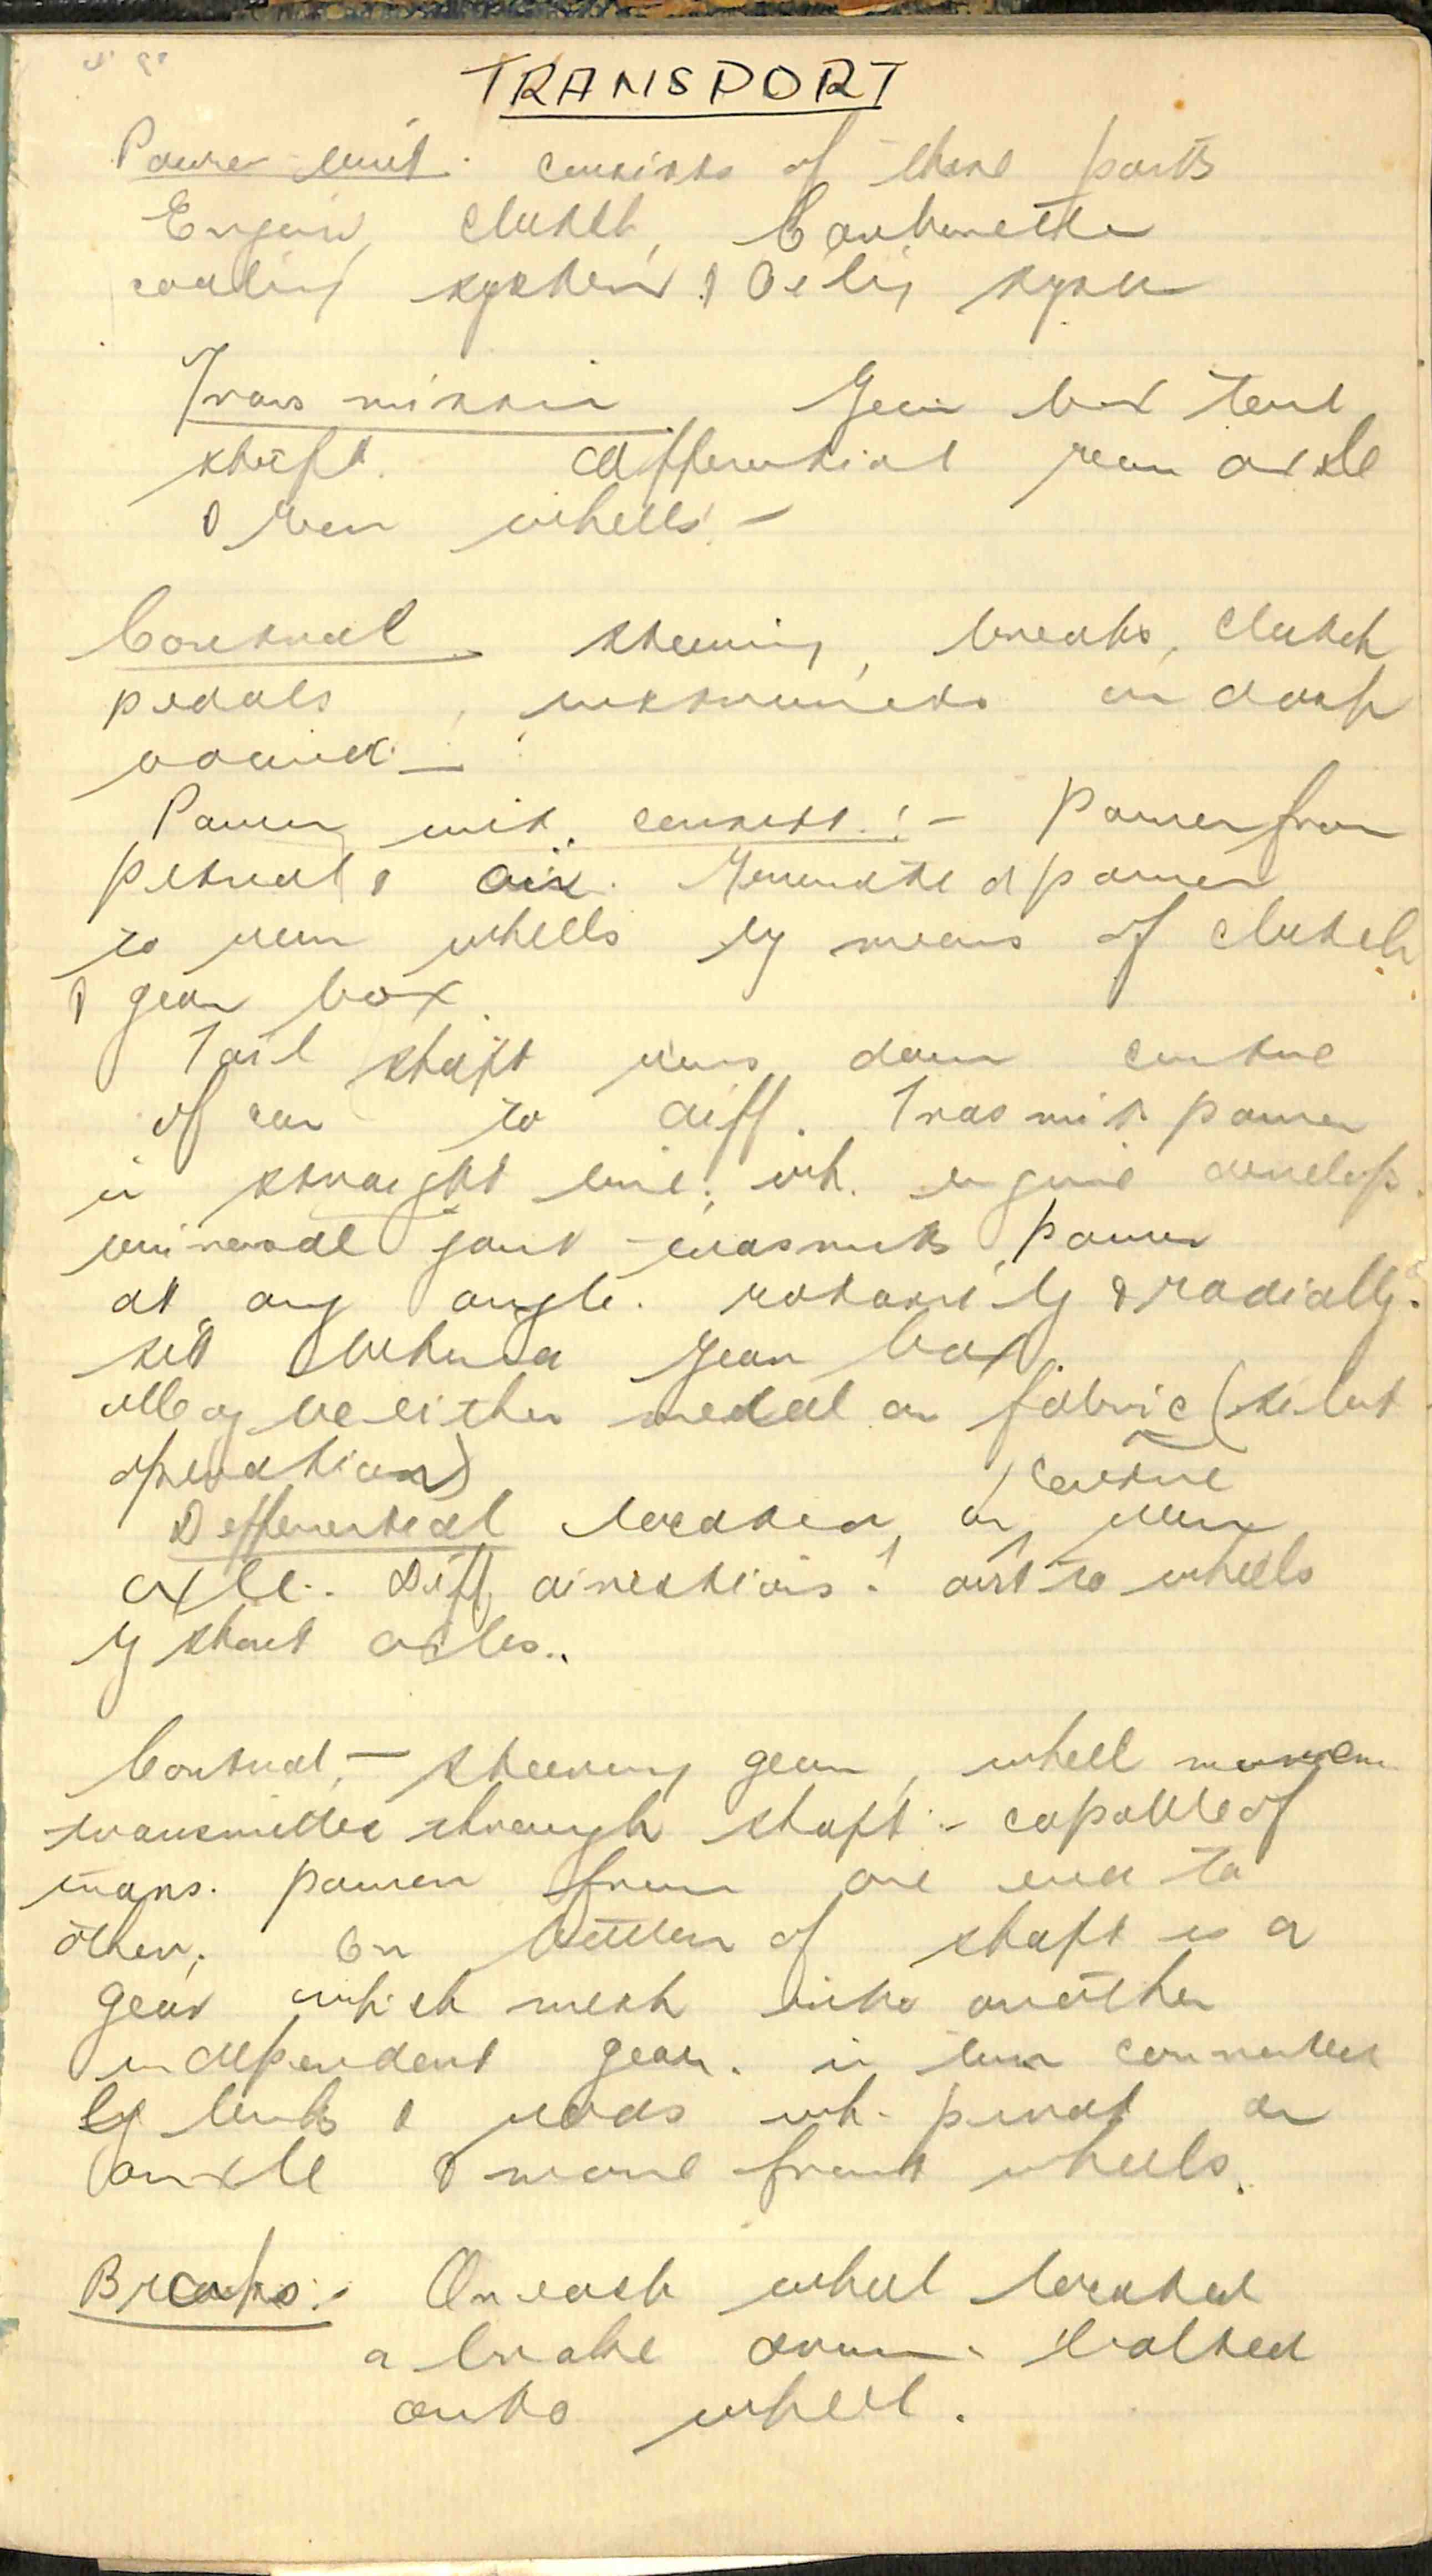 TRANSPORT
Power unit. consists of these parts
Engine, clutch, Carburetter
cooling system & Oiling system
Transmission Gear box tail
shaft. differential rear axle
& rear wheels. -
Control. steering, breaks, clutch
pedals, instruments on dash
board. -
Power unit. consist. :- Power from
petrol & air. Generated power
to rear wheels by means of clutch
& gear box.
Tail shaft runs down centre
of car to diff. Trasmit power
in straight line. wh. engine develops.
universal joint trasmits power
at any angle. rotary & radially.
set behind gear box.
May be either metal or fabric (silent
operation)
centre
Differential located on rear
axle. Diff directions. out to wheels
by short axles..
Control, - steering gear, wheel movem
transmitted through shaft - capable of
trans. power from one end to
other. On bottom of shaft is a
gear which mesh into another
independent gear. in turn connected
by links & rods wh. pivot on
axle & move front wheels.
Breaks:- On each wheel located
a brake drum. bolted
onto wheel.